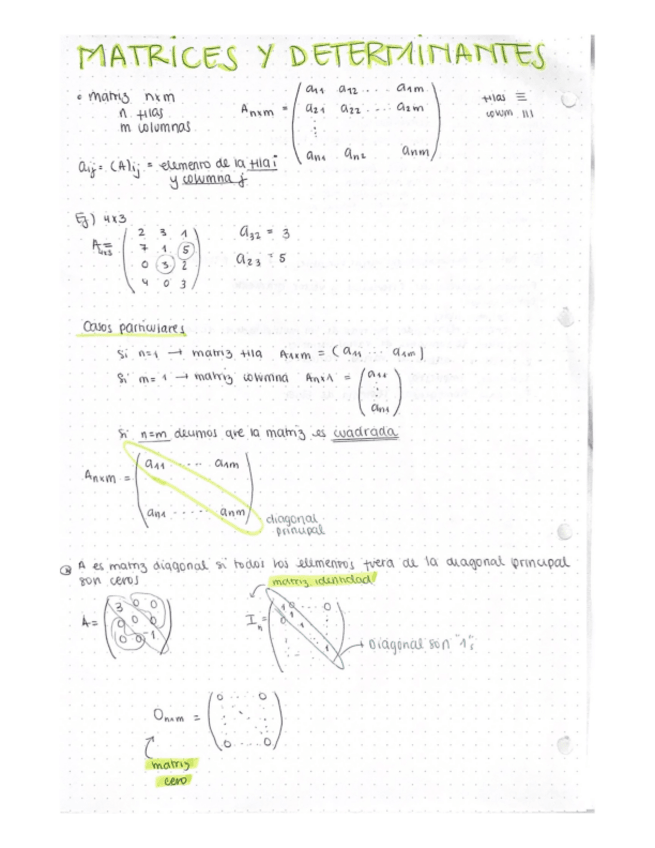 MATRICES Y DETERMINANTES
• matriz nxm
n filas
m columnas
Anxm = ( a11 a12 .... a1m
a21 a22 .... a2m
⋮
an1 an2 anm )
filas ≡
colum III
aij = (A)ij = elemento de la fila i
y columna j
Ej) 4x3
A4x3 = ( 2 3 1
7 1 5
0 3 2
4 0 3 )
a32 = 3
a23 = 5
Casos particulares
Si n=1 → matriz fila A1xm = (a11 ... a1m)
Si m=1 → matriz columna Anx1 = ( a11
⋮
an1 )
Si n=m decimos que la matriz es cuadrada
Anxm = ( a11 ..... a1m
an1 ..... anm )
diagonal
principal
A es matriz diagonal si todos los elementos fuera de la diagonal principal
son ceros
matriz identidad
A = ( 3 0 0
0 0 0
0 0 -1 )
In = ( 1 0 ... 0
0 1
1
1 )
→ Diagonal son "1"s
Onxm = ( 0 .... 0
0 .... 0 )
matriz
cero